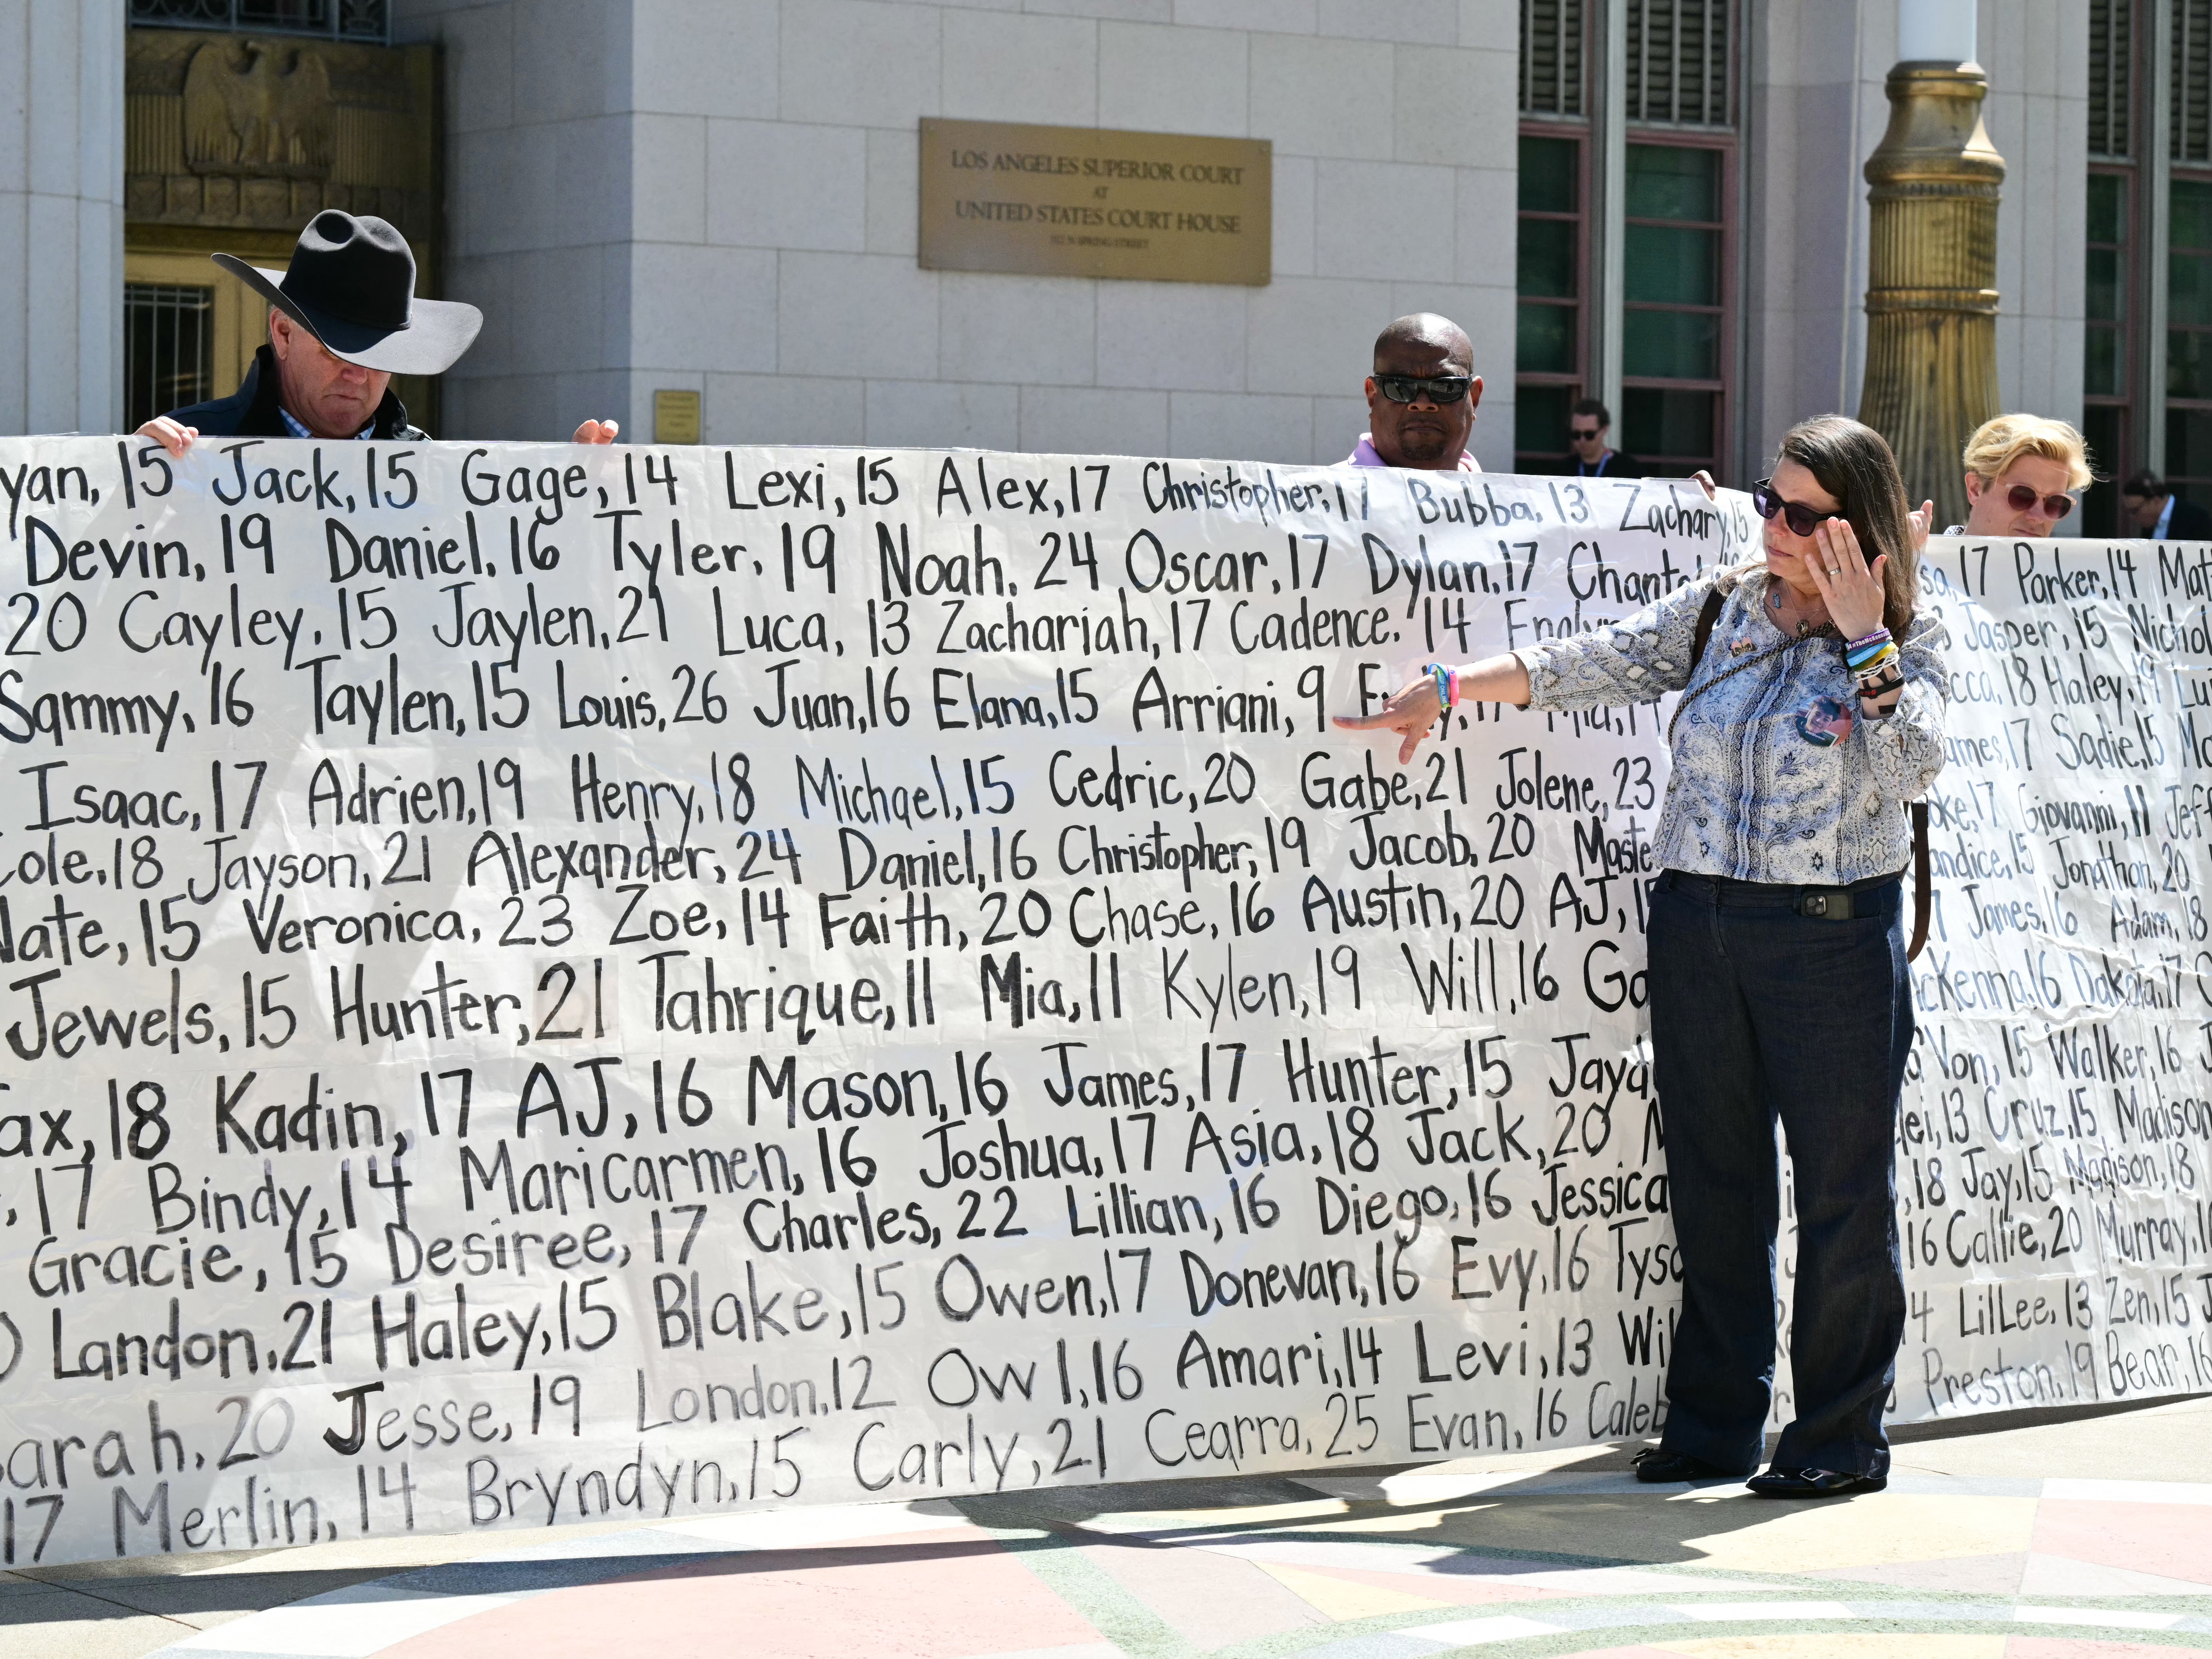 LOS ANGELES SUPERIOR COURT
AT
UNITED STATES COURT HOUSE
312 N SPRING STREET
yan, 15 Jack, 15 Gage, 14 Lexi, 15 Alex, 17 Christopher, 17 Bubba, 13 Zachary, 15
Devin, 19 Daniel, 16 Tyler, 19 Noah, 24 Oscar, 17 Dylan, 17 17 Parker, 14
20 Cayley, 15 Jaylen, 21 Luca, 13 Zachariah, 17 Cadence, 14 Jasper, 15
Sammy, 16 Taylen, 15 Louis, 26 Juan, 16 Elana, 15 Arriani, 9 18 Haley, 19
Isaac, 17 Adrien, 19 Henry, 18 Michael, 15 Cedric, 20 Gabe, 21 Jolene, 23 17 Sadie, 15
Cole, 18 Jayson, 21 Alexander, 24 Daniel, 16 Christopher, 19 Jacob, 20 17 Giovanni, 11
Nate, 15 Veronica, 23 Zoe, 14 Faith, 20 Chase, 16 Austin, 20 AJ, 15 Jonathan, 20
Jewels, 15 Hunter, 21 Tahrique, 11 Mia, 11 Kylen, 19 Will, 16 James, 16 Adam, 18
ax, 18 Kadin, 17 AJ, 16 Mason, 16 James, 17 Hunter, 15 16 Dakota, 17
17 Bindy, 14 Maricarmen, 16 Joshua, 17 Asia, 18 Jack, 20 Von, 15 Walker, 16
Gracie, 15 Desiree, 17 Charles, 22 Lillian, 16 Diego, 16 Jessica 13 Cruz, 15 Madison
Landon, 21 Haley, 15 Blake, 15 Owen, 17 Donevan, 16 Evy, 16 18 Jay, 15 Madison, 18
arah, 20 Jesse, 19 London, 12 Ow 1, 16 Amari, 14 Levi, 13 16 Callie, 20 Murray, 1
17 Merlin, 14 Bryndyn, 15 Carly, 21 Cearra, 25 Evan, 16 Caleb LilLee, 13 Zen, 15
Preston, 19 Bear, 16